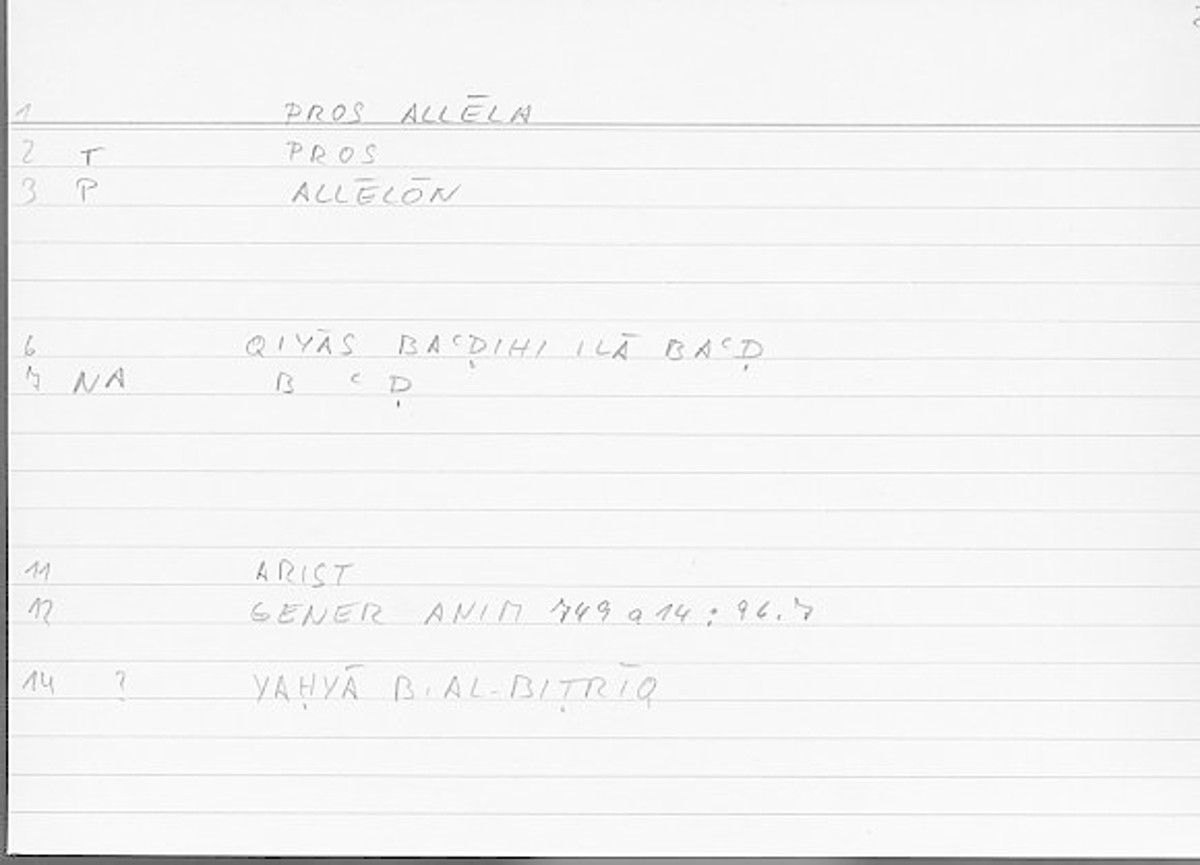 1 PROS ALLĒLA
2 T PROS
3 P ALLĒLŌN
6 QIYĀS BAʿḌIHI ILĀ BAʿḌ
7 NA B ʿ Ḍ
11 ARIST
12 GENER ANIM 749 a 14 : 96.7
14 ? YAḤYĀ B. AL-BIṬRĪQ